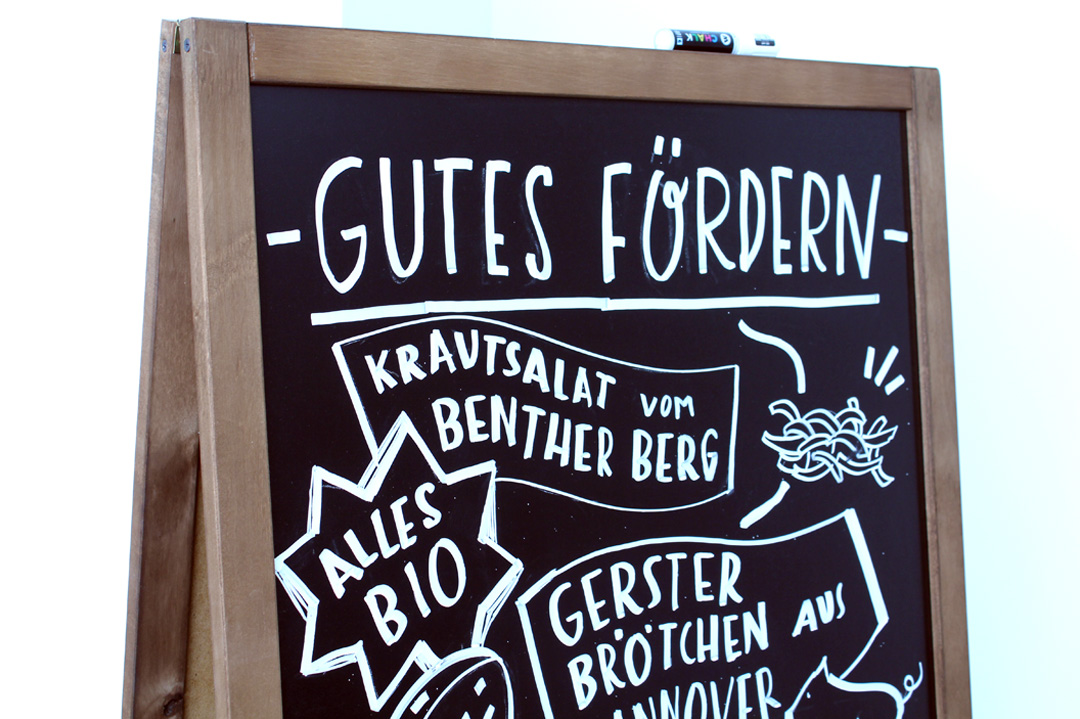 CHALK
-GUTES FÖRDERN-
KRAUTSALAT VOM
BENTHER BERG
ALLES
BIO
GERSTER
BRÖTCHEN AUS